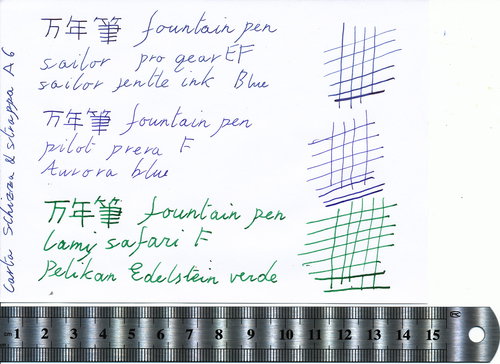 万年筆 fountain pen
sailor pro gear EF
sailor jentle ink Blue
万年筆 fountain pen
pilot prera F
Aurora blue
万年筆 fountain pen
Lamy safari F
Pelikan Edelstein verde
Carta Schizza & strappa A6
cm 1 2 3 4 5 6 7 8 9 10 11 12 13 14 15